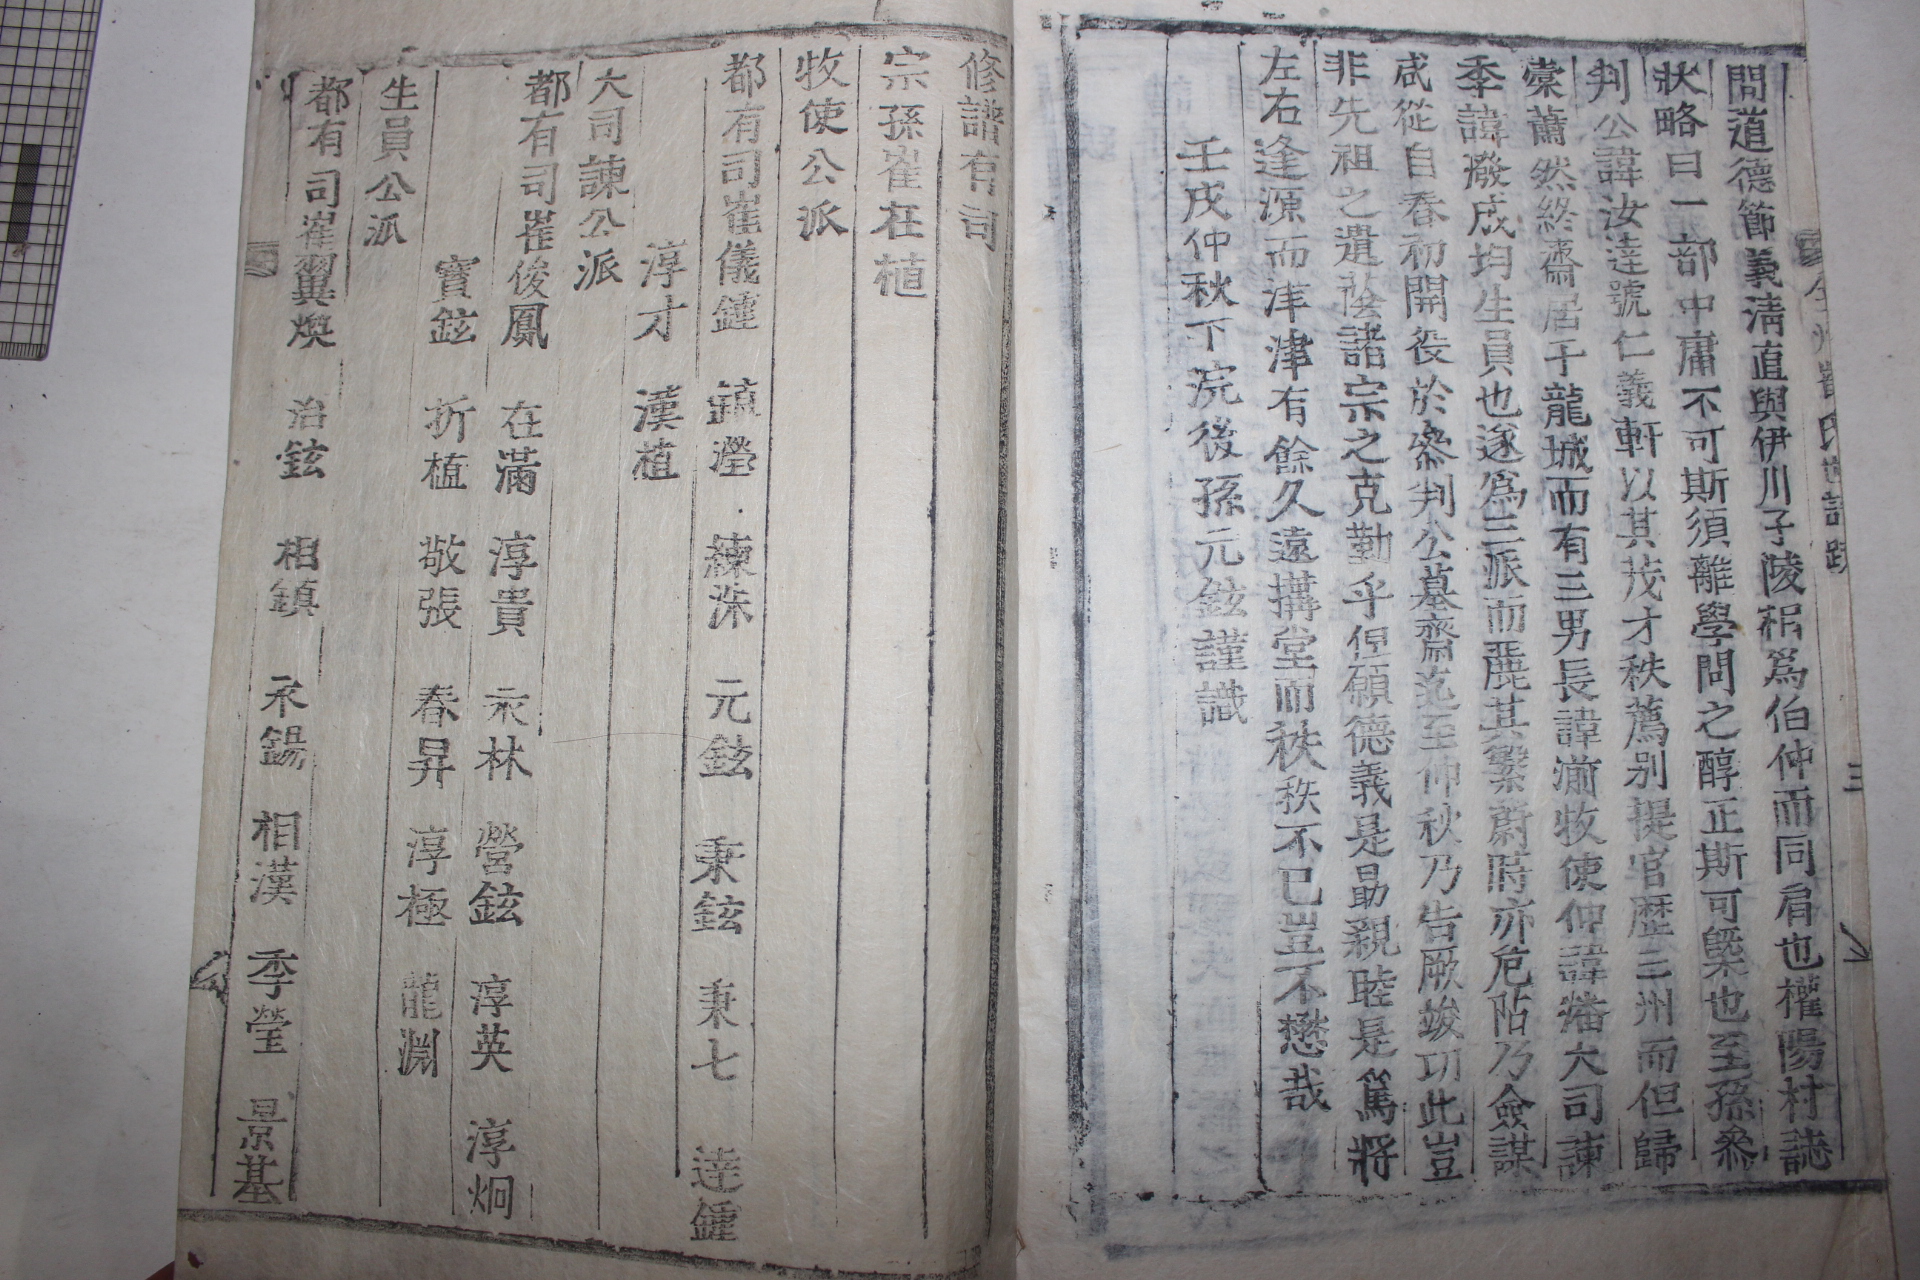 問道德節義淸直與伊川子陵稆爲伯仲而同肩也權陽村誌
狀略曰一部中庸不可斯須離學問之醇正斯可槩也至孫叅
判公諱汝達號仁義軒以其茂才秩薦別提官歷三州而但歸
棠蕭然終齋居于龍城而有三男長諱湔牧使仲諱潘大司諫
季諱潑成均生員也遂爲三派而麗其繁蔚時亦危阽乃僉謀
咸從自春初開役於叅判公墓齋迄至仲秋乃告厥竣功此豈
非先祖之遺蔭諸宗之克勤乎但願德義是勗親睦是篤將
左右逢源而津津有餘久遠搆堂而秩秩不已豈不懋哉
壬戌仲秋下浣後孫元鉉謹識
三
修譜有司
宗孫崔在植
牧使公派
都有司崔儀鍾 鎭瀅 練洙 元鉉 秉鉉 秉七 達鍾
淳才 漢植
大司諫公派
都有司崔俊鳳 在滿 淳貴 永林 營鉉 淳英 淳炯
寶鉉 折植 敬張 春昇 淳極 龍淵
生員公派
都有司崔翼煥 治鉉 相鎭 永錫 相漢 季瑩 景基